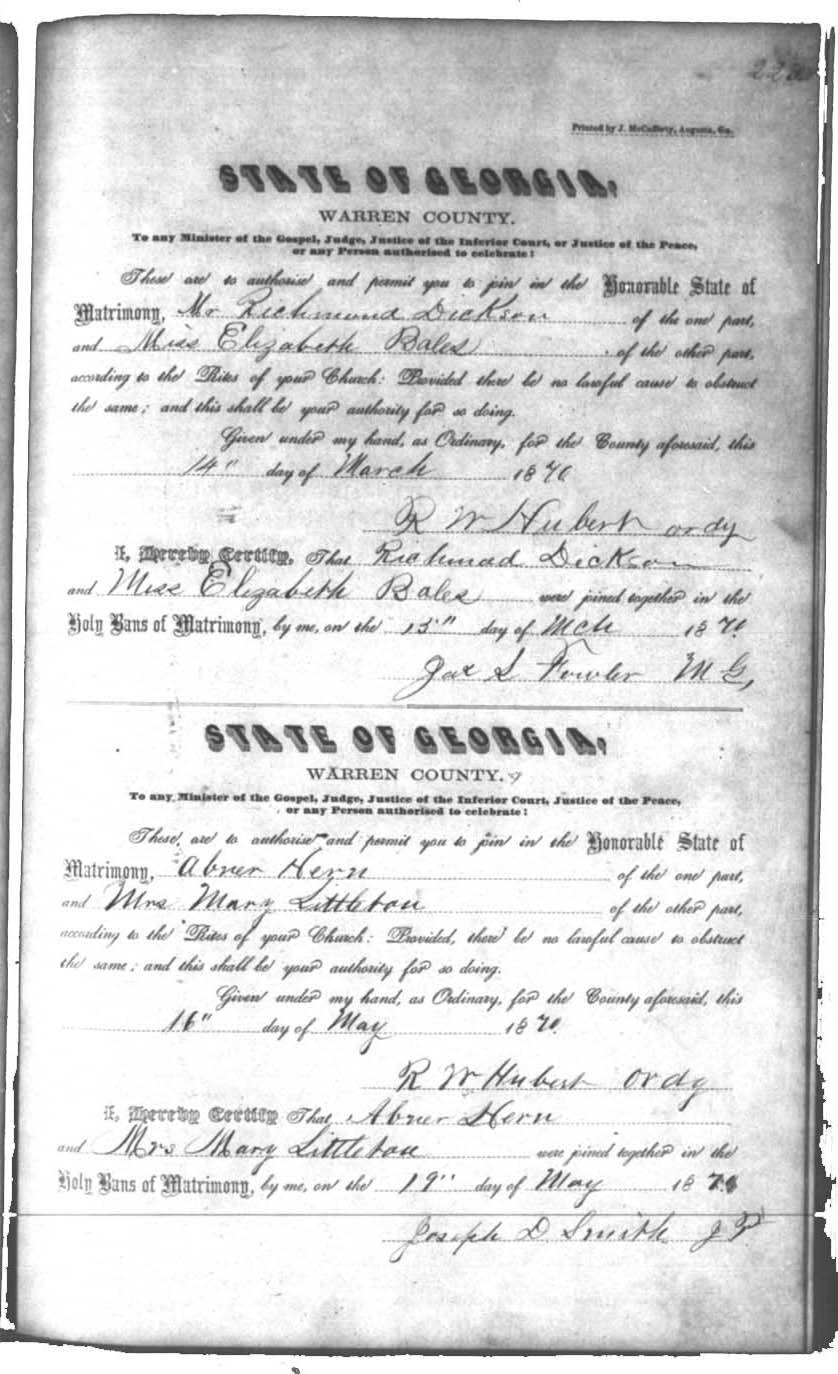 Printed by J. McCafferty, Augusta, Ga.
STATE OF GEORGIA,
WARREN COUNTY.
To any Minister of the Gospel, Judge, Justice of the Inferior Court, or Justice of the Peace,
or any Person authorised to celebrate:
These are to authorise and permit you to join in the Honorable State of
Matrimony, Mr Richmond Dickson of the one part,
and Miss Elizabeth Bales of the other part,
according to the Rites of your Church: Provided there be no lawful cause to obstruct
the same; and this shall be your authority for so doing.
Given under my hand, as Ordinary, for the County aforesaid, this
14" day of March 1870
R W Hubert ordy
I, Hereby Certify, That Richmad Dickson
and Miss Elizabeth Bales were joined together in the
Holy Bans of Matrimony, by me, on the 15" day of Mch 1870.
Jas S Fowler M G,
STATE OF GEORGIA,
WARREN COUNTY.
To any Minister of the Gospel, Judge, Justice of the Inferior Court, Justice of the Peace,
or any Person authorised to celebrate:
These are to authorise and permit you to join in the Honorable State of
Matrimony, Abner Hern of the one part,
and Mrs Mary Littleton of the other part,
according to the Rites of your Church: Provided, there be no lawful cause to obstruct
the same; and this shall be your authority for so doing.
Given under my hand, as Ordinary, for the County aforesaid, this
16" day of May 1870.
R W Hubert ordy
I, Hereby Certify That Abner Hern
and Mrs Mary Littleton were joined together in the
Holy Bans of Matrimony, by me, on the 19" day of May 1870
Joseph D. Smith J P